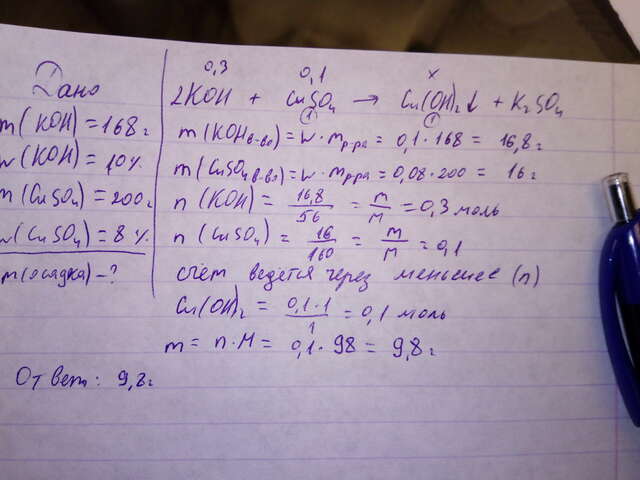 Дано
m(KOH)=168г
w(KOH)=10%
m(CuSO4)=200г
w(CuSO4)=8%
m(осадка)-?
0,3 0,1 x
2KOH + CuSO4 → Cu(OH)2↓ + K2SO4
1 1
m(KOHв-во)=w·mр-ра=0,1·168=16,8г
m(CuSO4 в-во)=w·mр-ра=0,08·200=16г
n(KOH)=16,8/56=m/M=0,3моль
n(CuSO4)=16/160=m/M=0,1
счёт ведется через меньшее (n)
Cu(OH)2=0,1·1/1=0,1моль
m=n·M=0,1·98=9,8г
Ответ: 9,8г